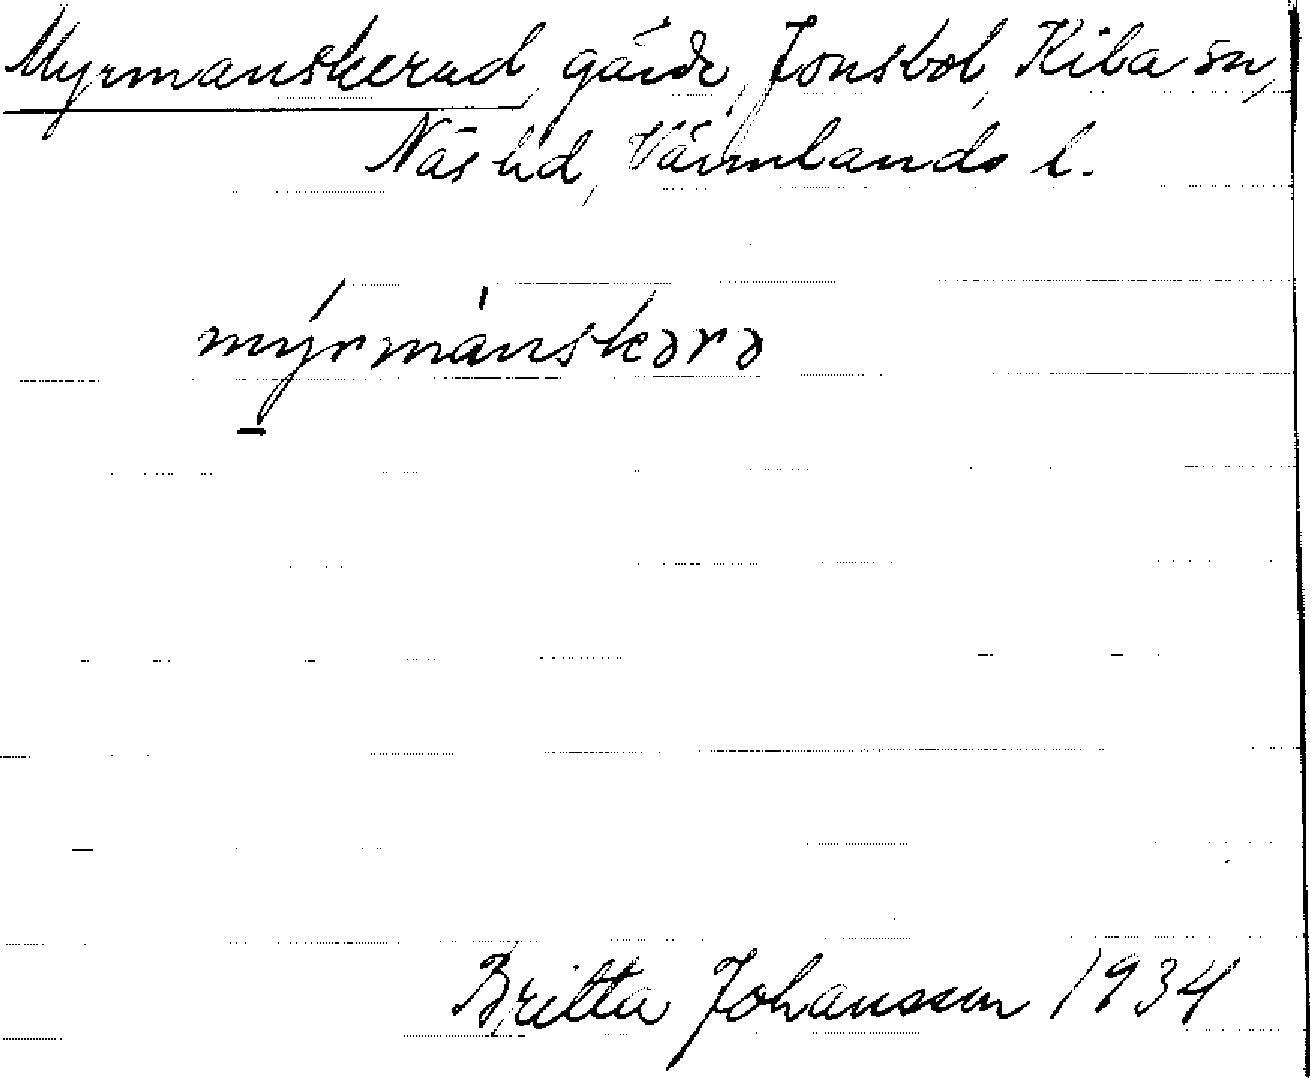 Myrmanskerud, gärde, Jonsbol, Kila sn,
Näs hd, Värmlands l.
mý̱rmánskərə
Britta Johansson 1934